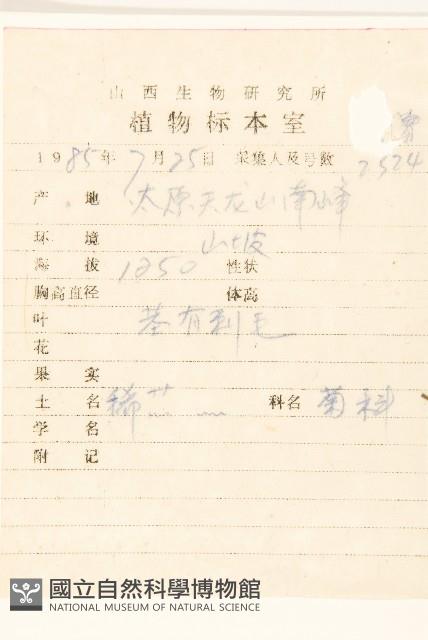 山西生物研究所
植物标本室
1985年7月25日 采集人及号数 2524
产地 太原天龙山南峰
环境 山坡
海拔 1250 性状
胸高直径 体高
叶 基有刺毛
花
果实
土名 稀 科名 菊科
学名
附记
國立自然科學博物館
NATIONAL MUSEUM OF NATURAL SCIENCE